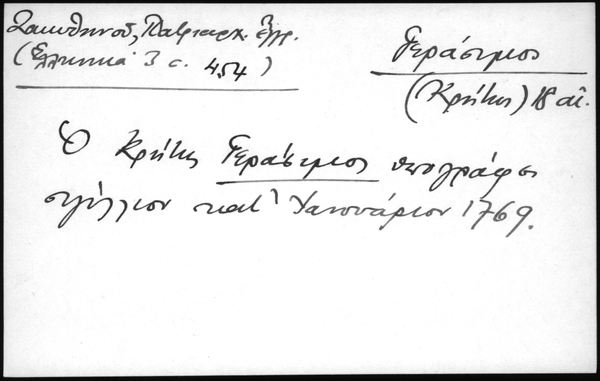 Ζακυθηνοῦ, Πατριαρχ. ἔγγρ.
(Ἑλληνικά 3 σ. 454)
Γεράσιμος
(Κρήτης) 18 αἰ.
Ὁ Κρήτης Γεράσιμος ὑπογράφει
σιγίλλιον κατ' Ἰανουάριον 1769.